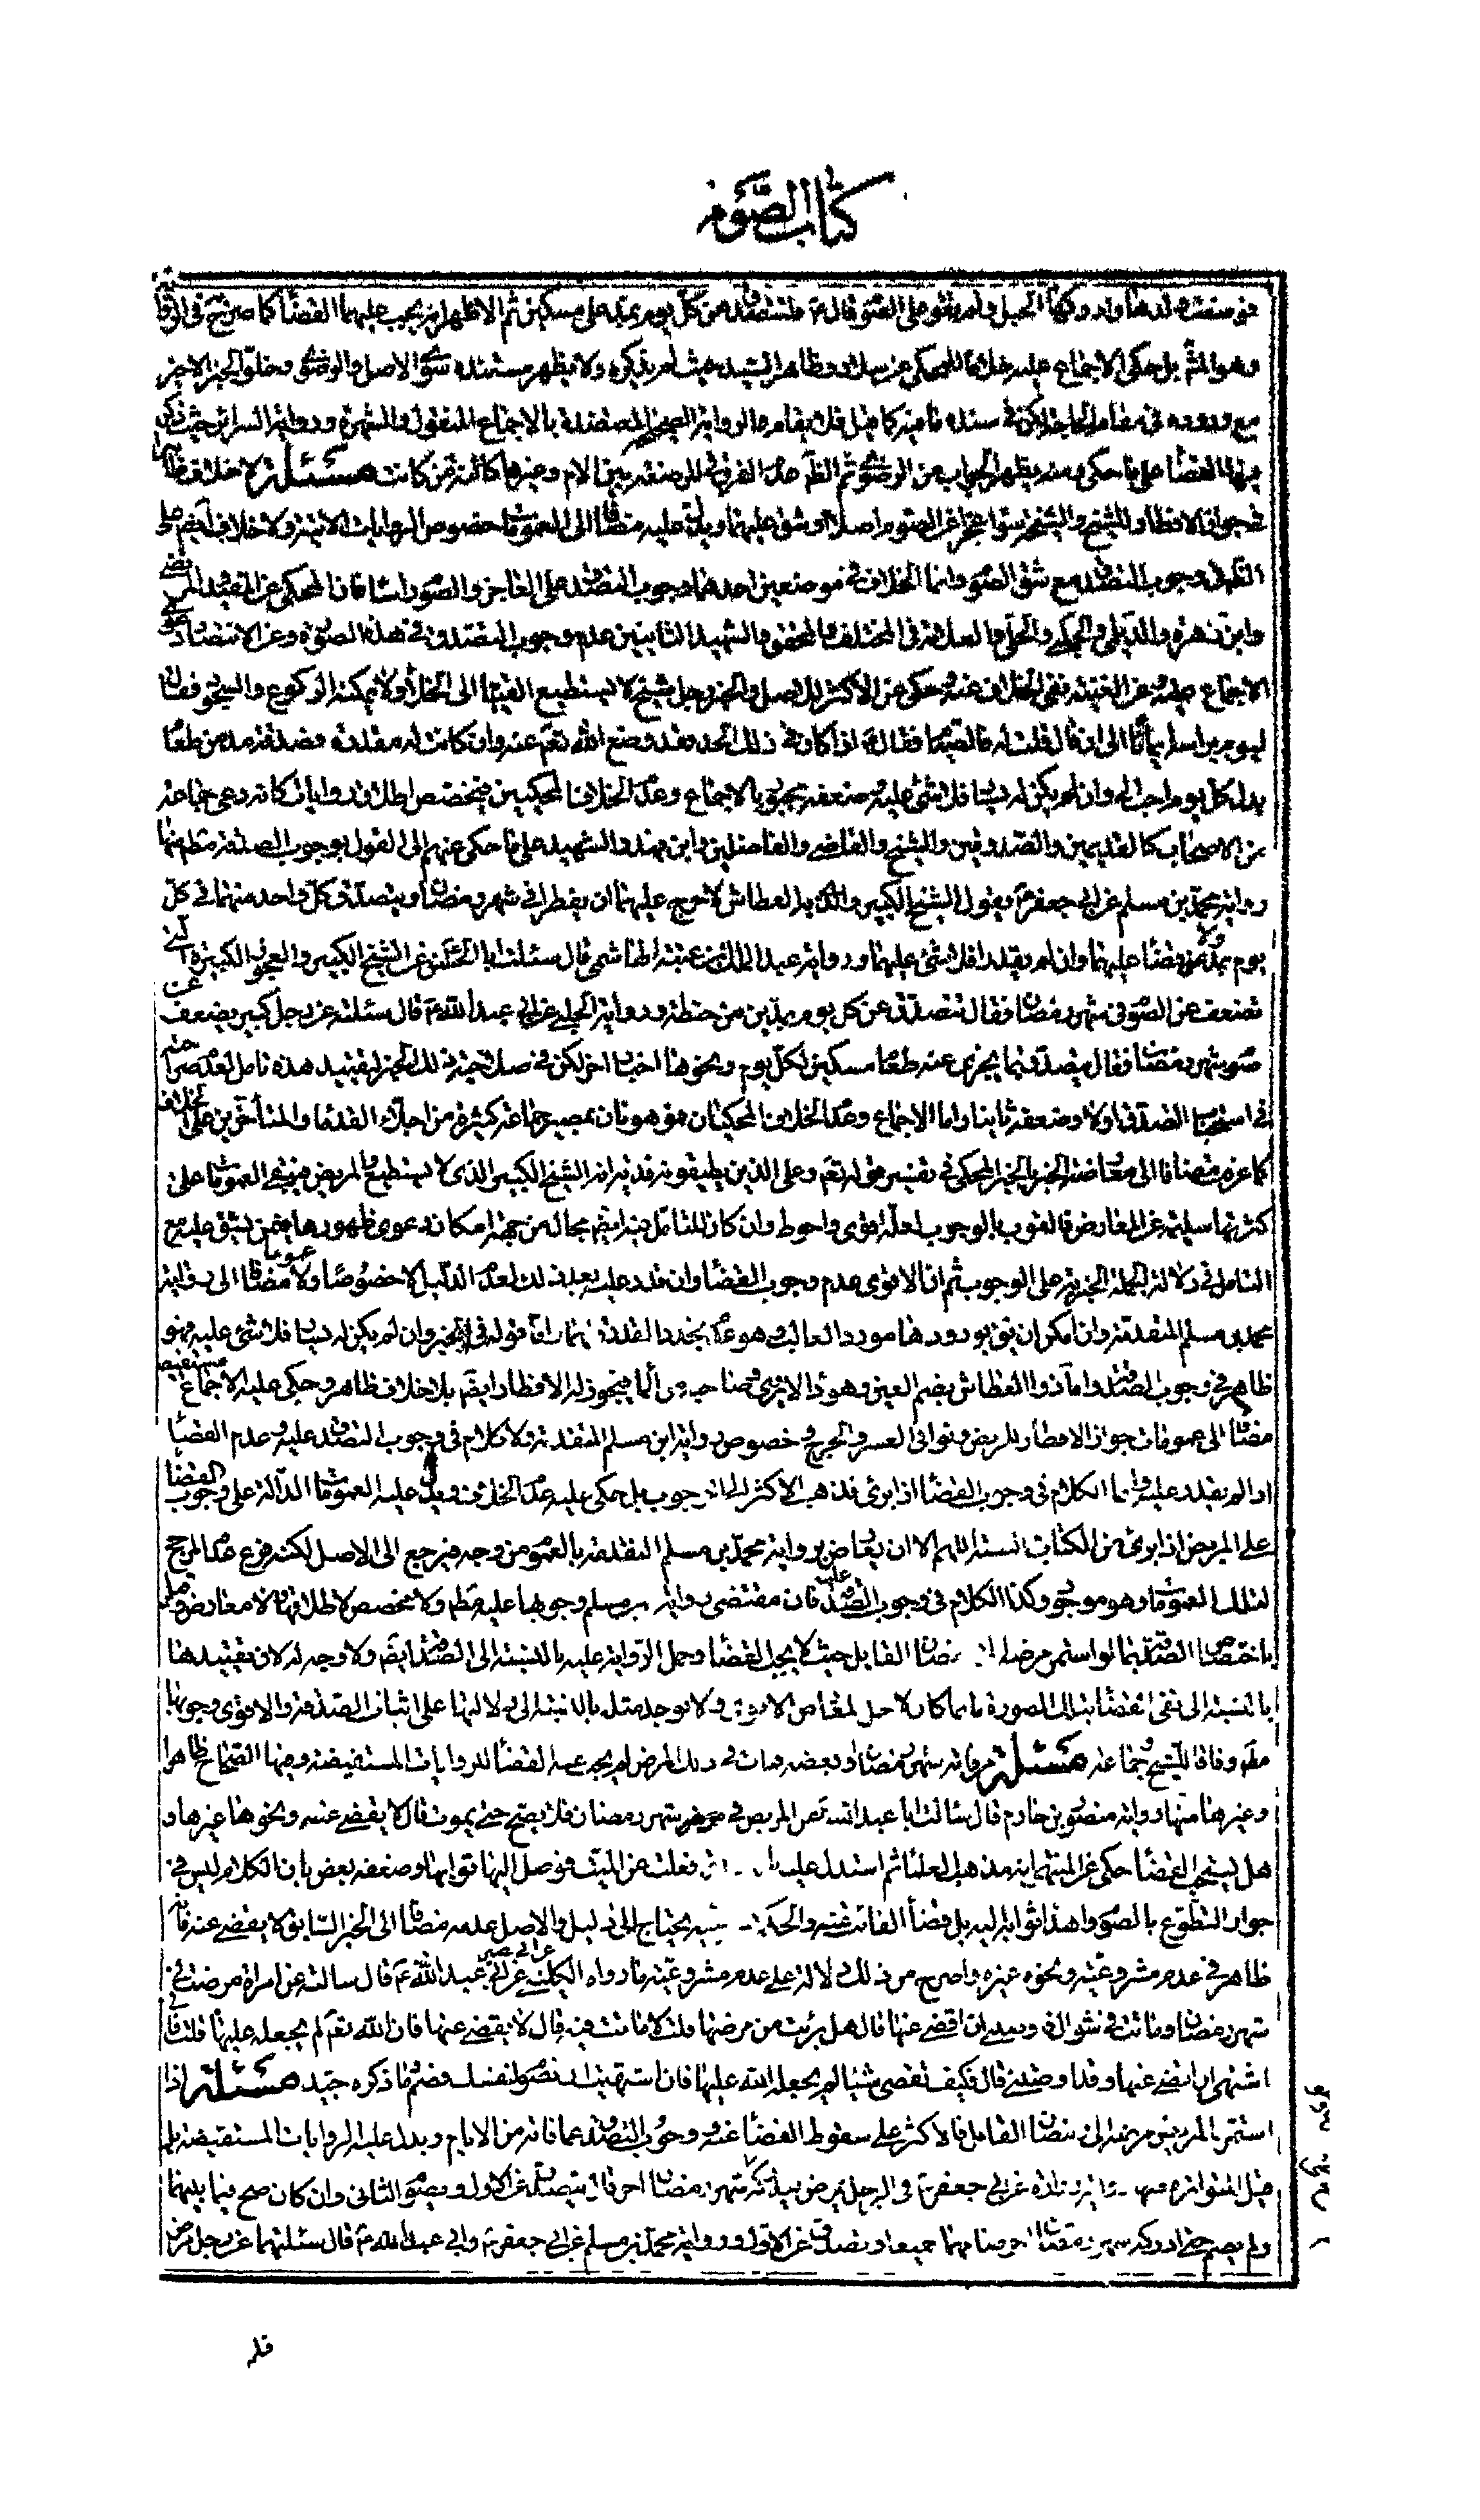 كتاب الصوم
فوضعت ولدها وادركها الحبل ولم تقو على الصوم قال ع فلتتصدق عن كل يوم بمد على مسكين ثم الاظهر انه يجب عليهما القضا كما صرح في
وهو المشهور بل حكى الاجماع عليه خلافا للمحكي عن سلار وظاهر السيد حيث لم يذكره ولا يظهر مستنده سوى الاصل والرضوي وخلو الخبر الاخير
مع وروده في مقام الحاجة لكن في سنده تامين كما قيل فلا يقاوم الرواية الصحيحة المعتضدة بالاجماع المنقول والشهرة ورواية السرائر حيث ذكر
فيها القضا على ما حكى ومنه يظهر الجواب عن الرضوي ثم الظ عدم الفرق في المرضعة بين الام وغيرها كائنة من كانت مسئلة لا خلاف
في جواز الافطار للشيخ والشيخة سواء عجزا عن الصوم اصلا او شق عليهما ويدل عليه مضافا الى العمومات خصوص الروايات الاتية ولا خلاف ايضا على
الظ في وجوب التصدق مع شق الصوم وانما الخلاف في موضعين احدهما وجوب التصدق على العاجز عن الصوم راسا فان المحكي عن المفيد
وابن زهرة والديلمي والحلي والعلامة في المختلف والمحقق والشهيد الثانيين عدم وجوب التصدق في هذه الصورة وعن الانتصار
الاجماع عليه وعن الغنية نفى الخلاف عنه وحكى عن الاكثر للاصل والخبر رجل شيخ لا يستطيع القيام الى الخلا ولا يمكنه الركوع والسجود فقال
ليوم براسه ايماء الى ان قال قلت له فالصيام فقال اذا كان في ذلك الحد فقد وضع الله تعم عنه وان كانت له مقدرة فصدقة مد من طعام
بدل كل يوم احب الي وان لم يكن له يسار فلا شئ عليه وضعفه مجبور بالاجماع وعدم الخلاف المحكيين فيخصص اطلاق روايات كانه دعى جماعة
من الاصحاب كالقديمين والصدوقين والشيخ والقاضي والفاضلين وابن فهد والشهيد على ما حكى عنهم الى القول بوجوب الصدقة مطم منها
رواية محمد بن مسلم عن ابي جعفر ع يقول الشيخ الكبير والذي به العطاش لا حرج عليهما ان يفطرا في شهر رمضان ويتصدق كل واحد منهما في كل
يوم بمد ولا قضا عليهما وان لم يقدرا فلا شئ عليهما ورواية عبد الملك بن عتبة الهاشمي قال سئلت ابا الحسن عن الشيخ الكبير والعجوز الكبيرة التي
تضعف عن الصوم في شهر رمضان فقال تتصدق عن كل يوم بمد من حنطة ورواية الحلبي عن ابي عبد الله ع قال سئلته عن رجل كبير يضعف عن
صوم شهر رمضان فقال يتصدق بما يجزي عنه طعام مسكين لكل يوم ونحوها اخبار اخر لكن في صلاحية ذلك الخبر لتقييد هذه تامل لعدم صراحته
في استحباب الصدقة اولا وضعفه ثانيا واما الاجماع وعدم الخلاف المحكيان فموهونان بمصير جماعة كثيرة من اجلاء القدما والمتأخرين على الخلاف
كما عرفت مضافا الى معارضة الخبر بالخبر المحكي في تفسير قوله تعم وعلى الذين يطيقونه فدية انه الشيخ الكبير الذي لا يستطيع والمريض فيبقى العمومات على
كثرتها سليمة عن المعارض فالقول بالوجوب لعله اقوى واحوط وان كان للتامل فيه ايضا مجال من جهة امكان دعوى ظهورها فيمن يشق عليه مع
التامل في دلالة الجملة الخبرية على الوجوب ثم ان الاقوى عدم وجوب القضا وان قدر عليه بعد ذلك لعدم الدليل لا خصوصا ولا عموما مضافا الى رواية
محمد بن مسلم المتقدمة وان امكن ان يق بورودها مورد الغالب وهو عدم تجدد القدرة فيها واما قوله في الخبر وان لم يكن له يسار فلا شئ عليه فهو
ظاهر في وجوب الصدقة واما ذو العطاش بضم العين وهو داء لا يروى صاحبه من الماء فيجوز له الافطار ايضا بلا خلاف ظاهر وحكى عليه الاجماع مستفيضا
مضافا الى عمومات جواز الافطار للمريض ونوافي العسر والحرج وخصوص رواية ابن مسلم المتقدمة ولا كلام في وجوب التصدق عليه وعدم القضا
اذا لم يقدر عليه وانما الكلام في وجوب القضا اذا برئ فذهب الاكثر الى الوجوب بل حكى عليه عدم الخلاف ويدل عليه العمومات الدالة على وجوب القضا
على المريض اذا برئ من الكتاب والسنة اللهم الا ان يعارض برواية محمد بن مسلم المتقدمة بالعموم من وجه فيرجع الى الاصل لكنه فرع عدم المرجح
لتلك العمومات وهو موجود وكذا الكلام في وجوب التصدق عليه فان مقتضى رواية بن مسلم وجوبها عليه مطم ولا مخصص لاطلاقها ولا معارض
باختصاص الصدقة بما لو استمر مرضه الى رمضان القابل حيث لا يجب القضا وحمل الرواية عليه بالنسبة الى الصدقة ايضا ولا وجه له لان تقييدها
بالنسبة الى نفى القضا بتلك الصورة انما كان لاجل لمعارض الاقوى ولا يوجد مثله بالنسبة الى دلالتها على اثبات الصدقة والاقوى وجوبها
مطم وفاقا للشيخ وجماعة مسئلة من فاته شهر رمضان او بعضه ومات في ذلك المرض لم يجب عنه القضا للروايات المستفيضة وفيها الصحاح ظاهرا
وغيرها منها رواية منصور بن حازم قال سالت ابا عبد الله ع عن المريض في شهر رمضان فلا يصح حتى يموت قال لا يقضى عنه ونحوها غيرها و
هل يستحب القضا حكى عن المنتهى انه مذهب علمائنا ثم استدل عليه فعلت عن الميت فوصل اليها ثوابها وضعفه بعض بان الكلام ليس في
جواز التطوع بالصوم واهداء ثوابه اليه بل قضا الفائت عنه والحكم بشرعيته يحتاج الى دليل والاصل عدمه مضافا الى الخبر السابق لا يقضى عنه فانه
ظاهر في عدم مشروعيته ونحوه غيره واصرح من ذلك دلالة على عدم مشروعيته ما رواه الكليني عن ابي بصير عن ابي عبد الله ع قال سالته عن امراة مرضت في
شهر رمضان وماتت في شوال فاوصتني ان اقضى عنها قال هل برئت من مرضها قلت لا ماتت فيه قال لا يقضى عنها فان الله تعم لم يجعله عليها قلت فاني
اشتهي ان اقضى عنها وقد اوصتني قال فكيف تقضى شيئا لم يجعله الله عليها فان اشتهيت ان تصوم لنفسك فصم وما ذكره جيد مسئلة اذا
استمر المريض مرضه الى رمضان القابل فالاكثر على سقوط القضا عنه ووجوب التصدق عما فاته من الايام ويدل عليه الروايات المستفيضة بل
قيل المتواترة منها رواية زرارة عن ابي جعفر ع في الرجل يمرض فيدركه شهر رمضان اخر قال يتصدق عن الاول ويصوم الثاني وان كان صح فيما بينهما
ولم يصم حتى ادركه شهر رمضان اخر صامهما جميعا وتصدق عن الاول ورواية محمد بن مسلم عن ابي جعفر ع وابي عبد الله ع قال سئلتهما عن رجل مرض
فلم